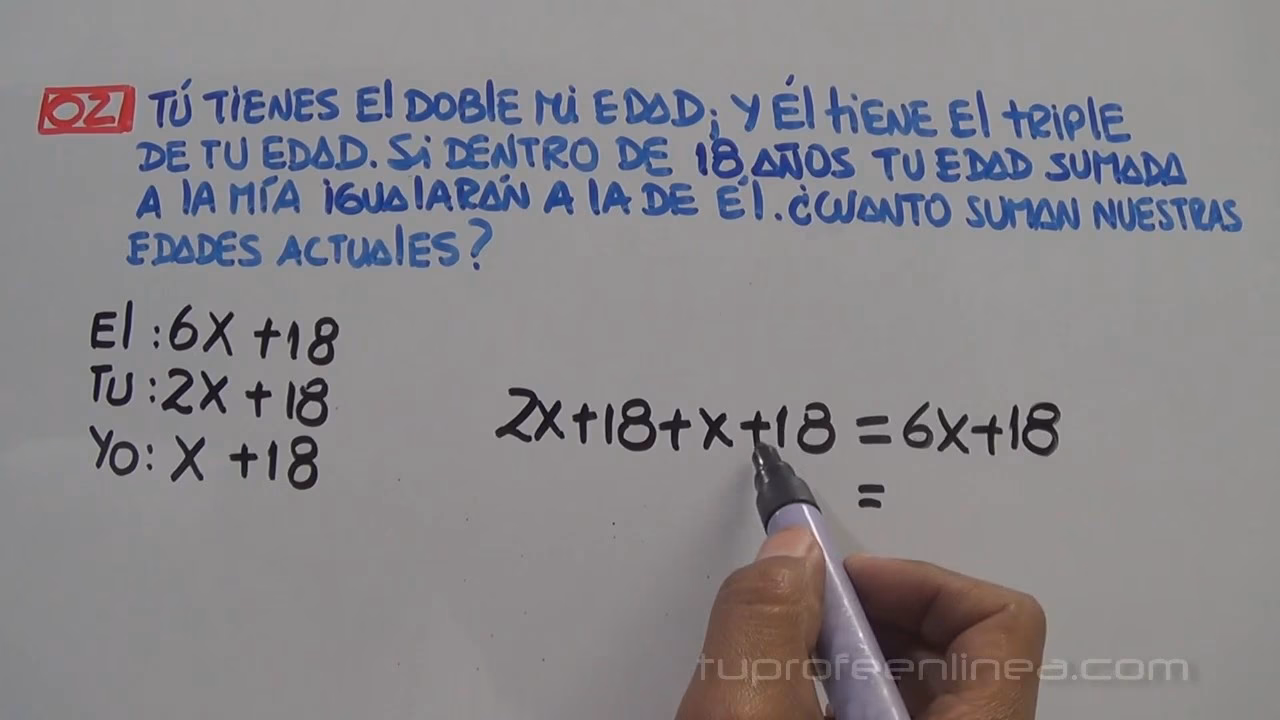 02 TÚ TIENES El DOBLE Mi EDAD; Y Él tiENE El tRIPLE
DE TU EDAD. Si DENTRO DE 18 AÑOS TU EDAD SUMADA
A lA MÍA iGUAlARÁN A lA DE Él. ¿CUANTO SUMAN NUESTRAS
EDADES ACTUAlES?
El : 6X + 18
TU : 2X + 18
YO : X + 18
2X+18+X+18 = 6X+18
=
tuprofeenlinea.com